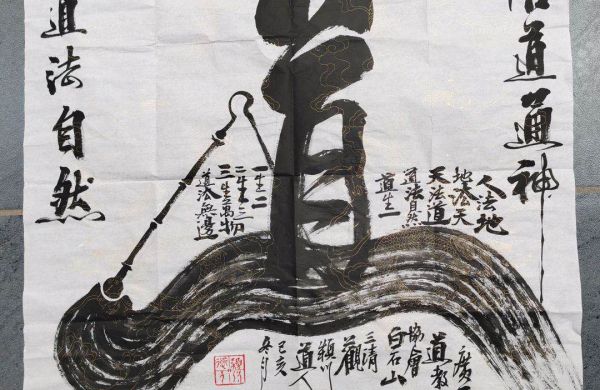 信道通神
道法自然
道
人法地
地法天
天法道
道法自然
道生一
一生二
二生三
三生萬物
道法無邊
道教
協會
白石山
三清
觀
潁川
道人
己亥
冬月